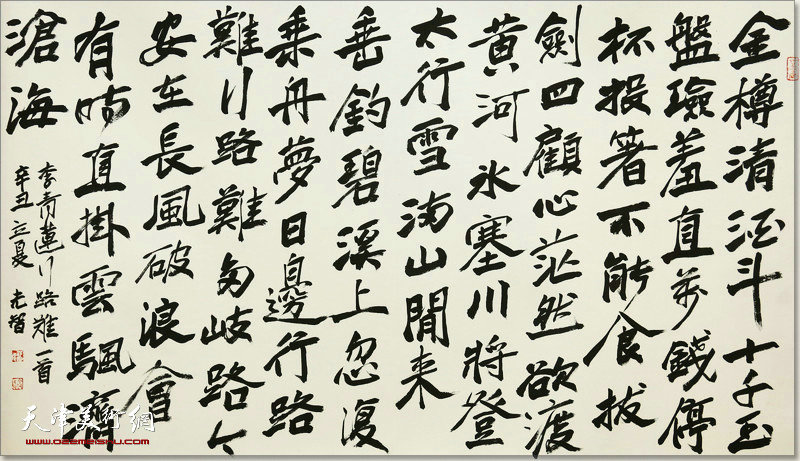 金樽清酒斗十千玉
盤珍羞直萬錢停
杯投箸不能食拔
劍四顧心茫然欲渡
黄河冰塞川將登
太行雪滿山閒来
垂釣碧溪上忽復
乘舟夢日邊行路
難行路難多岐路今
安在長風破浪會
有時直掛雲颿濟
滄海
李青蓮行路難一首
辛丑立夏
天津美術網
www.022meishu.com